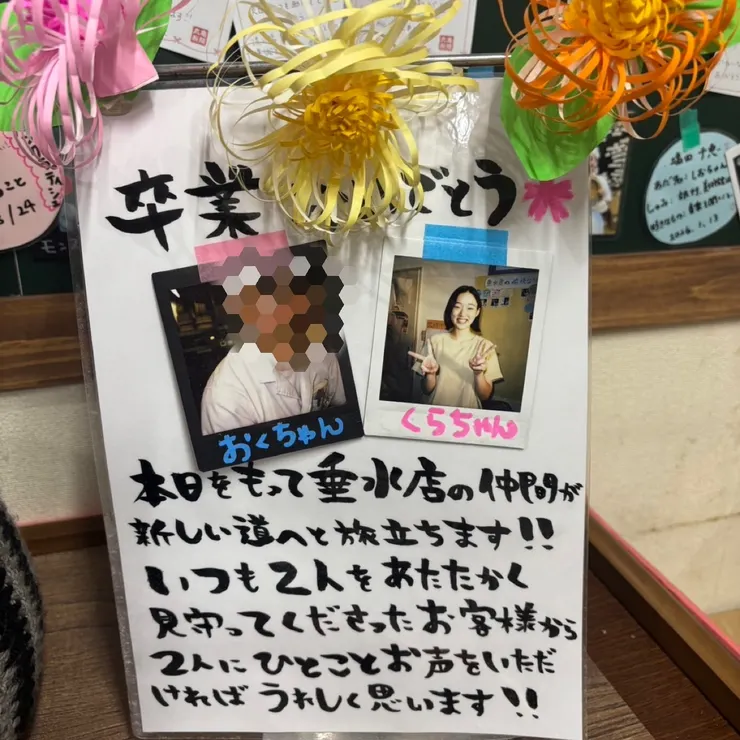 卒業 どとう
おくちゃん
くらちゃん
本日をもって垂水店の仲間が
新しい道へと旅立ちます!!
いつも2人をあたたかく
見守ってくださったお客様から
2人にひとことお声をいただ
ければうれしく思います!!
モン
8/24
あだ名:しおちゃん
2026.1.13